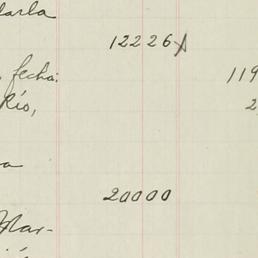 darla
12226
fecha: 119
Río, 2
20000
Mar-